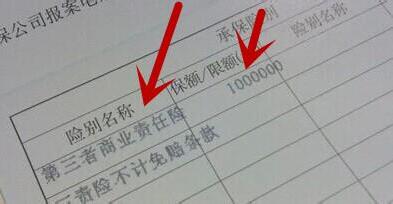 保公司报案记
承保险别
险别名称 保额/限额( 险别名称
第三者商业责任险 1000000
三责险不计免赔条款